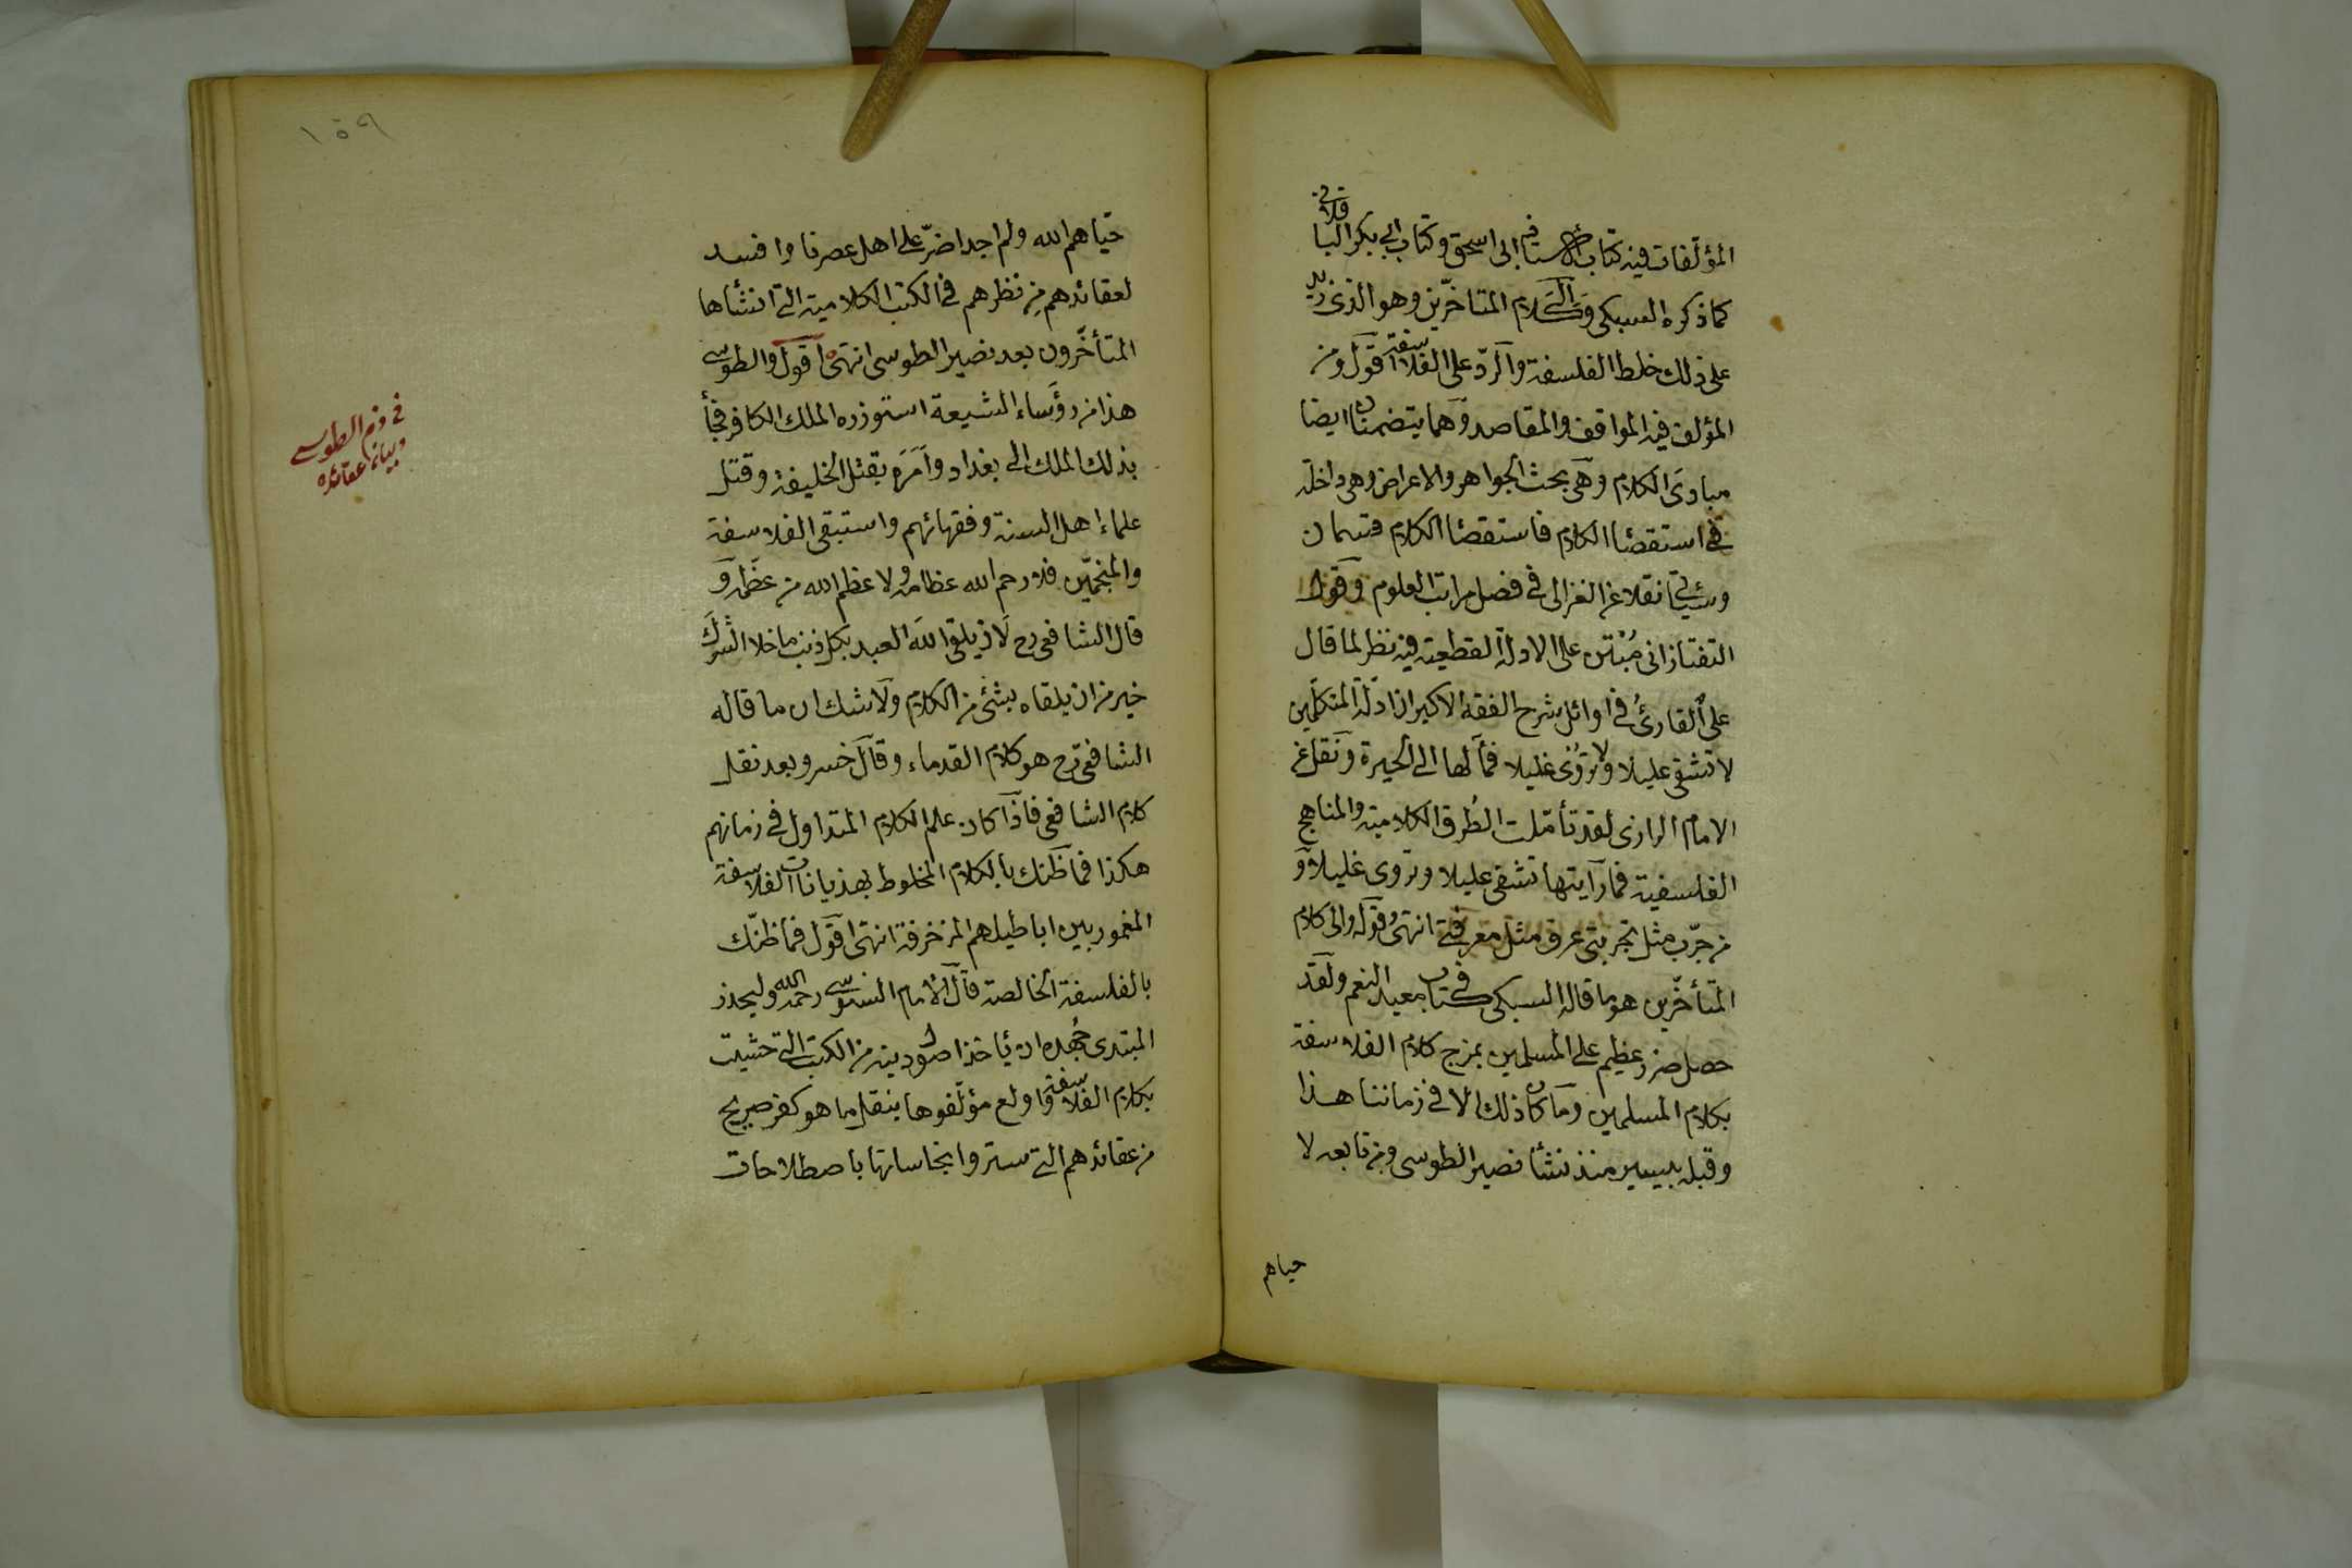 المؤلفات فيه كتاب الاستاذ ابى اسحق وكتاب ابي بكر الباقلانى
كما ذكره السبكى والى كلام المتاخرين وهو الذى زيد
على ذلك خلط الفلسفة والرد على الفلاسفة اقول ومن
المؤلف فيه المواقف والمقاصد وهما يتضمنان ايضا
مبادى الكلام وهى بحث الجواهر والاعراض وهى داخلة
فى استقصاا الكلام فاستقصاا الكلام قسمان
وسيأتى نقلا عن الغزالى فى فصل مراتب العلوم وقول
التفتازانى مبتن على الادلة القطعية فيه نظر لما قال
على القارئ فى اوائل شرح الفقه الاكبر ان ادلة المتكلمين
لا تشفى عليلا ولا تروى غليلا فمآلها الى الحيرة ونقل عن
الامام الرازى لقد تأملت الطرق الكلامية والمناهج
الفلسفية فما رآيتها تشفى عليلا وتروى غليلا و
من جرب مثل تجربتى عرف مثل معرفتى انتهى قوله والى كلام
المتأخرين هو ما قاله السبكى فى كتاب معيد النعم ولقد
حصل ضرر عظيم على المسلمين بمزج كلام الفلاسفة
بكلام المسلمين وما كان ذلك الا فى زماننا هذا
وقبله بيسير منذ نشأ نصير الطوسى ومن تابعه لا
حياهم
١٥٩
حيّاهم الله ولم اجد اضرّ على اهل عصرنا وافسد
لعقائدهم من نظرهم فى الكتب الكلامية التى انشأها
المتأخرون بعد نصير الطوسى انتهى اقول والطوسى
هذا من رؤساء الشيعة استوزره الملك الكافر فجأ
بذلك الملك الى بغداد وامره بقتل الخليفة وقتل
علماء اهل السنة وفقهائهم واستبقى الفلاسفة
والمنجمّين فلا رحم الله عظامه ولا عظم الله من عظمه و
قال الشافعى رح لان يلقى الله العبد بكل ذنب ما خلا الشرك
خير من ان يلقاه بشئ من الكلام ولا شك ان ما قاله
الشافعى رح هو كلام القدماء وقال خسرو بعد نقل
كلام الشافعى فاذا كان علم الكلام المتداول فى زمانهم
هكذا فما ظنك بالكلام المخلوط بهذيانات الفلاسفة
المغمور بين اباطيلهم المزخرفة انتهى اقول فما ظنّك
بالفلسفة الخالصة قال الامام السنوسى رحمه الله وليحذر
المبتدى جهده ان يأخذ اصول دينه من الكتب التى حشيت
بكلام الفلاسفة واولع مؤلفوها بنقل ما هو كفر صريح
من عقائدهم التى ستروا نجاساتها باصطلاحات
فى ذم الطوسى
وبيان عقائده